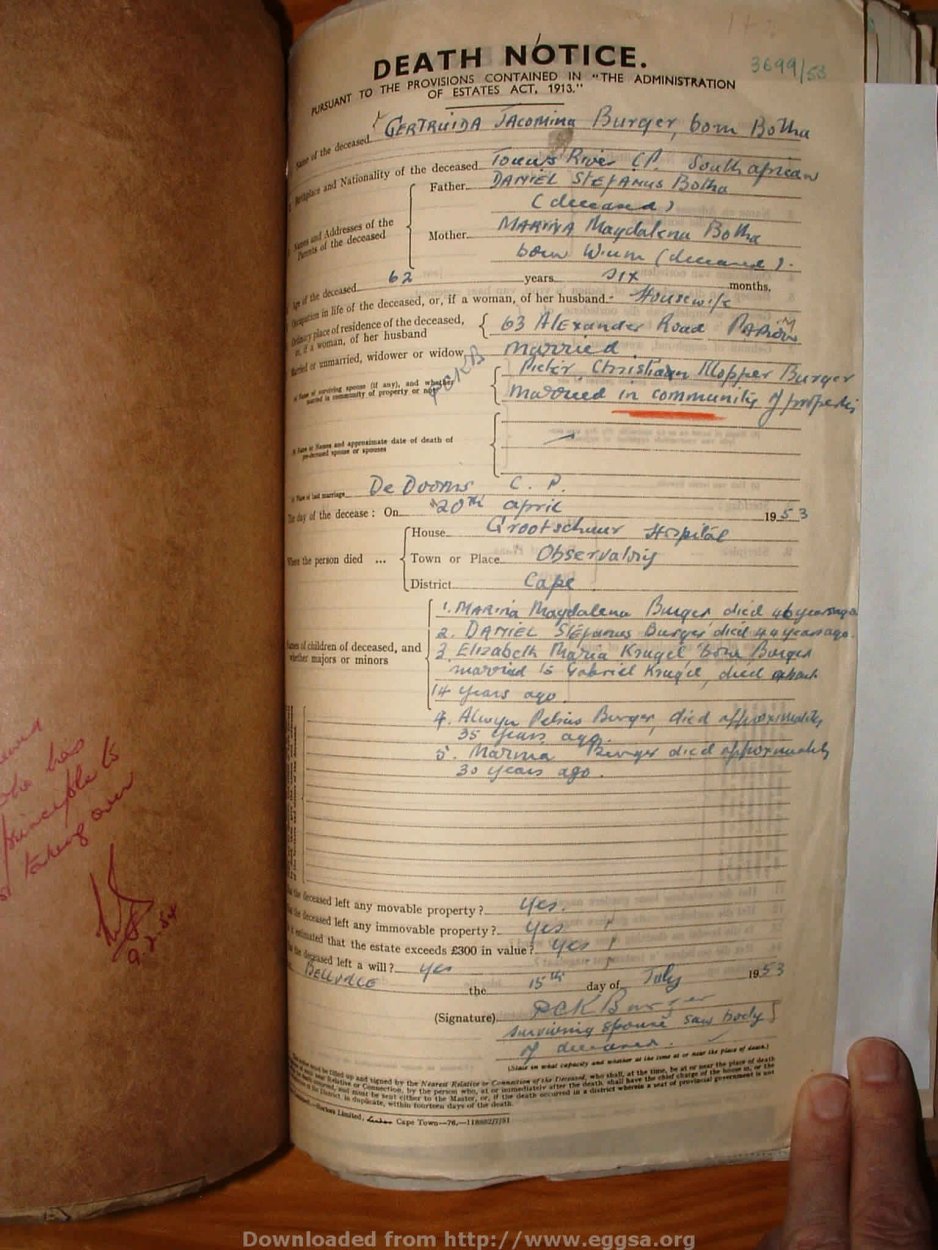 3699/53
DEATH NOTICE.
PURSUANT TO THE PROVISIONS CONTAINED IN "THE ADMINISTRATION
OF ESTATES ACT, 1913."
Name of the deceased GERTRUIDA JACOMINA Burger, born Botha
Birthplace and Nationality of the deceased Touws River C.P. South african
Names and Addresses of the Parents of the deceased
Father DANIEL STEFANUS Botha
(deceased)
Mother MARTHA Magdalena Botha
born Wium (deceased).
Age of the deceased 62 years six months,
Occupation in life of the deceased, or, if a woman, of her husband Housewife
Ordinary place of residence of the deceased, or, if a woman, of her husband 63 Alexander Road PAROW
Married or unmarried, widower or widow Married
PCKB
(a) Name of surviving spouse (if any), and whether married in community of property or not
Pieter Christiaan Klopper Burger
married in community of property
(b) Name or Names and approximate date of death of pre-deceased spouse or spouses
(c) Place of last marriage De Doorns C. P.
The day of the decease: On 20th april 1953
Where the person died ...
House Grootschuur Hospital
Town or Place Observatory
District Cape
Names of children of deceased, and whether majors or minors
1. MARINA Magdalena Burger died 46 years ago
2. DANIEL STEFANUS Burger died 44 years ago.
3 Elizabeth Maria Krugel born Burger
married to Gabriel Krugel, died about
14 years ago
4. Alwyn Petrus Burger, died approximately
35 years ago.
5. Marina Burger died approximately
30 years ago.
Has the deceased left any movable property? Yes.
Has the deceased left any immovable property? Yes
Is it estimated that the estate exceeds £300 in value? Yes
Has the deceased left a will? Yes
BELLVILLE the 15th day of July 1953
(Signature) PCK Burger
surviving spouse saw body
of deceased.
(State in what capacity and whether at the time at or near the place of death.)
must be filled up and signed by the Nearest Relative or Connection of the Deceased, who shall, at the time, be at or near the place of death
Relative or Connection, by the person who, at or immediately after the death, shall have the chief charge of the house in, or the
and must be sent either to the Master, or, if the death occurred in a district wherein a seat of provincial government is not
in duplicate, within fourteen days of the death.
Limited, Cape Town—76.—118882/7/51
who has
principle to
taking over
9.2.54
Downloaded from http://www.eggsa.org